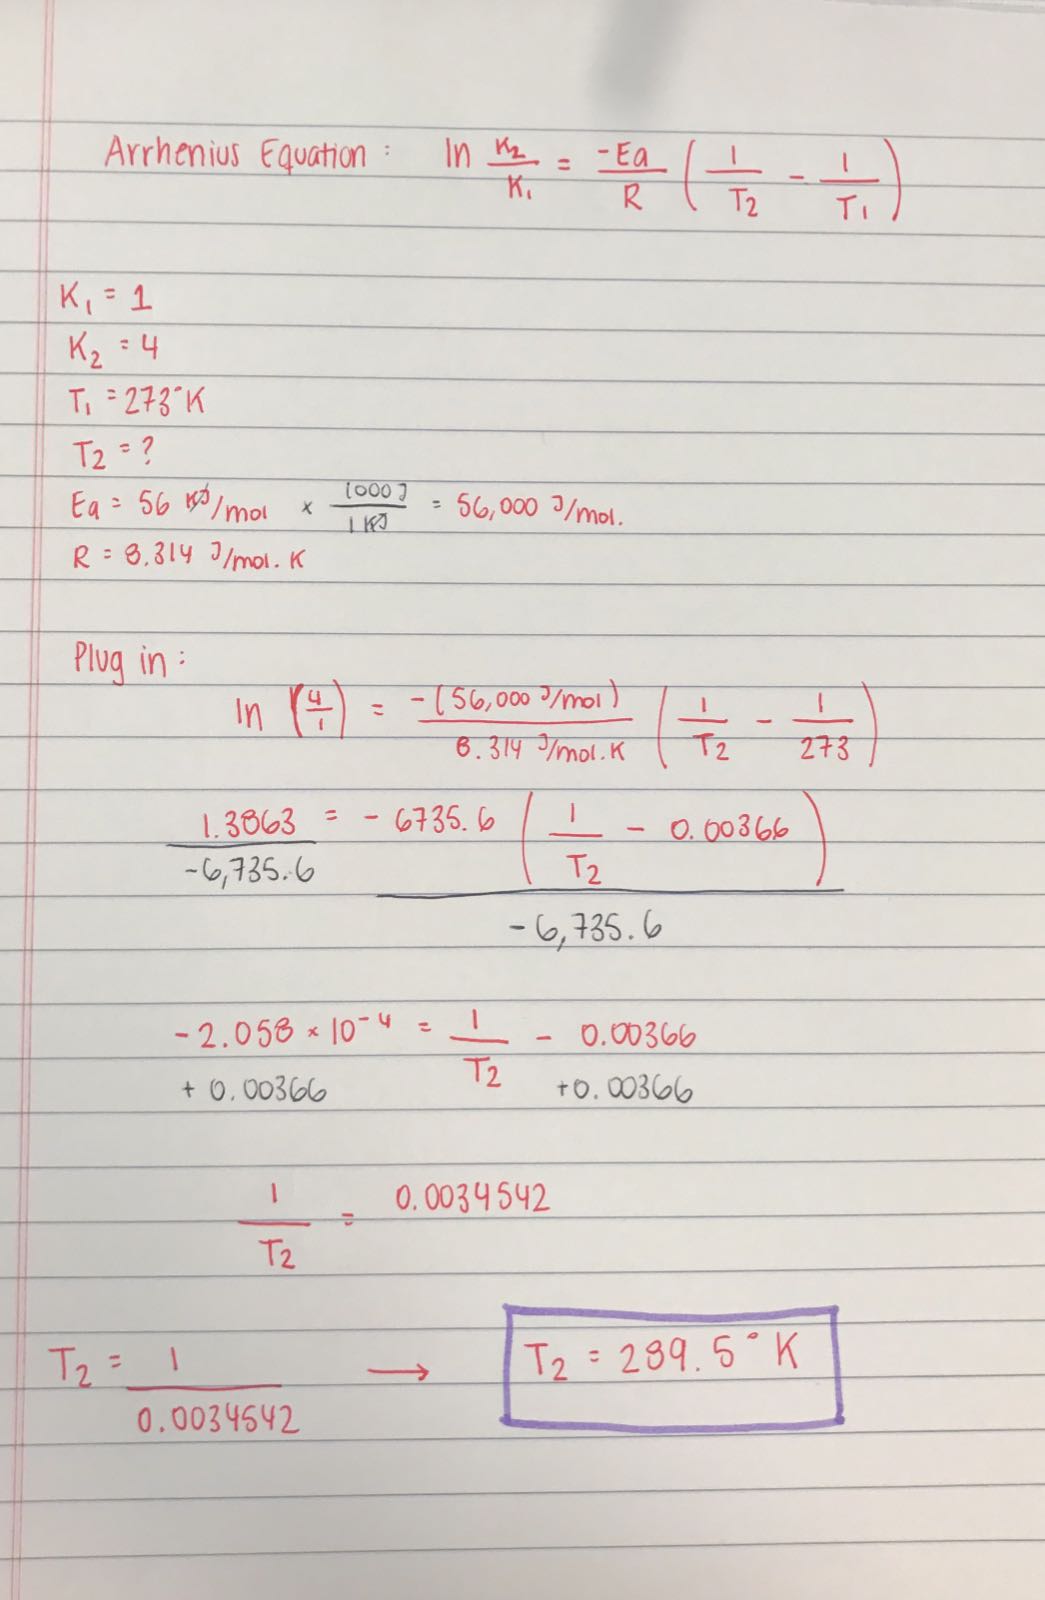 Arrhenius Equation : ln K2/K1 = -Ea/R ( 1/T2 - 1/T1 )
K1 = 1
K2 = 4
T1 = 273°K
T2 = ?
Ea = 56 KJ/mol × 1000J/1KJ = 56,000 J/mol.
R = 8.314 J/mol.K
Plug in :
ln (4/1) = -(56,000 J/mol)/8.314 J/mol.K ( 1/T2 - 1/273 )
1.3863 = - 6735.6 ( 1/T2 - 0.00366 )
-6,735.6 -6,735.6
-2.058 × 10⁻⁴ = 1/T2 - 0.00366
+ 0.00366 +0.00366
1/T2 = 0.0034542
T2 = 1/0.0034542 → T2 = 289.5°K